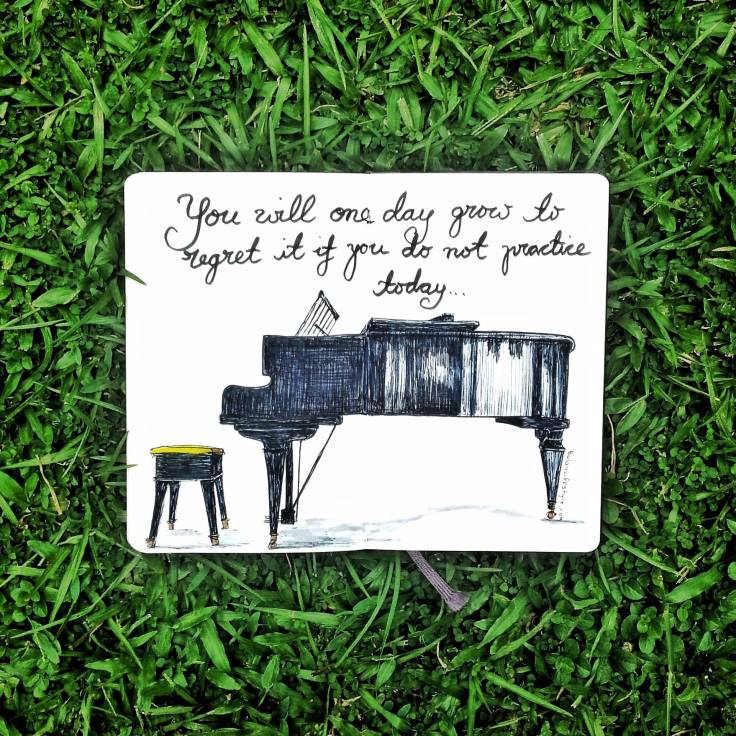 You will one day grow to
regret it if you do not practice
today...